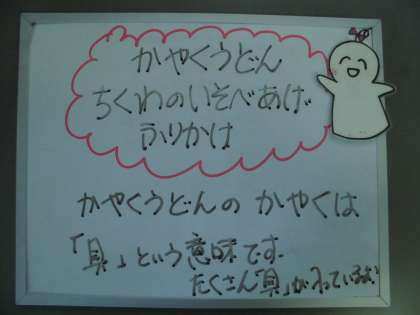 かやくうどん
ちくわのいそべあげ
ふりかけ
かやくうどんの かやくは
「具」という意味です。
たくさん「具」が入っているよ!